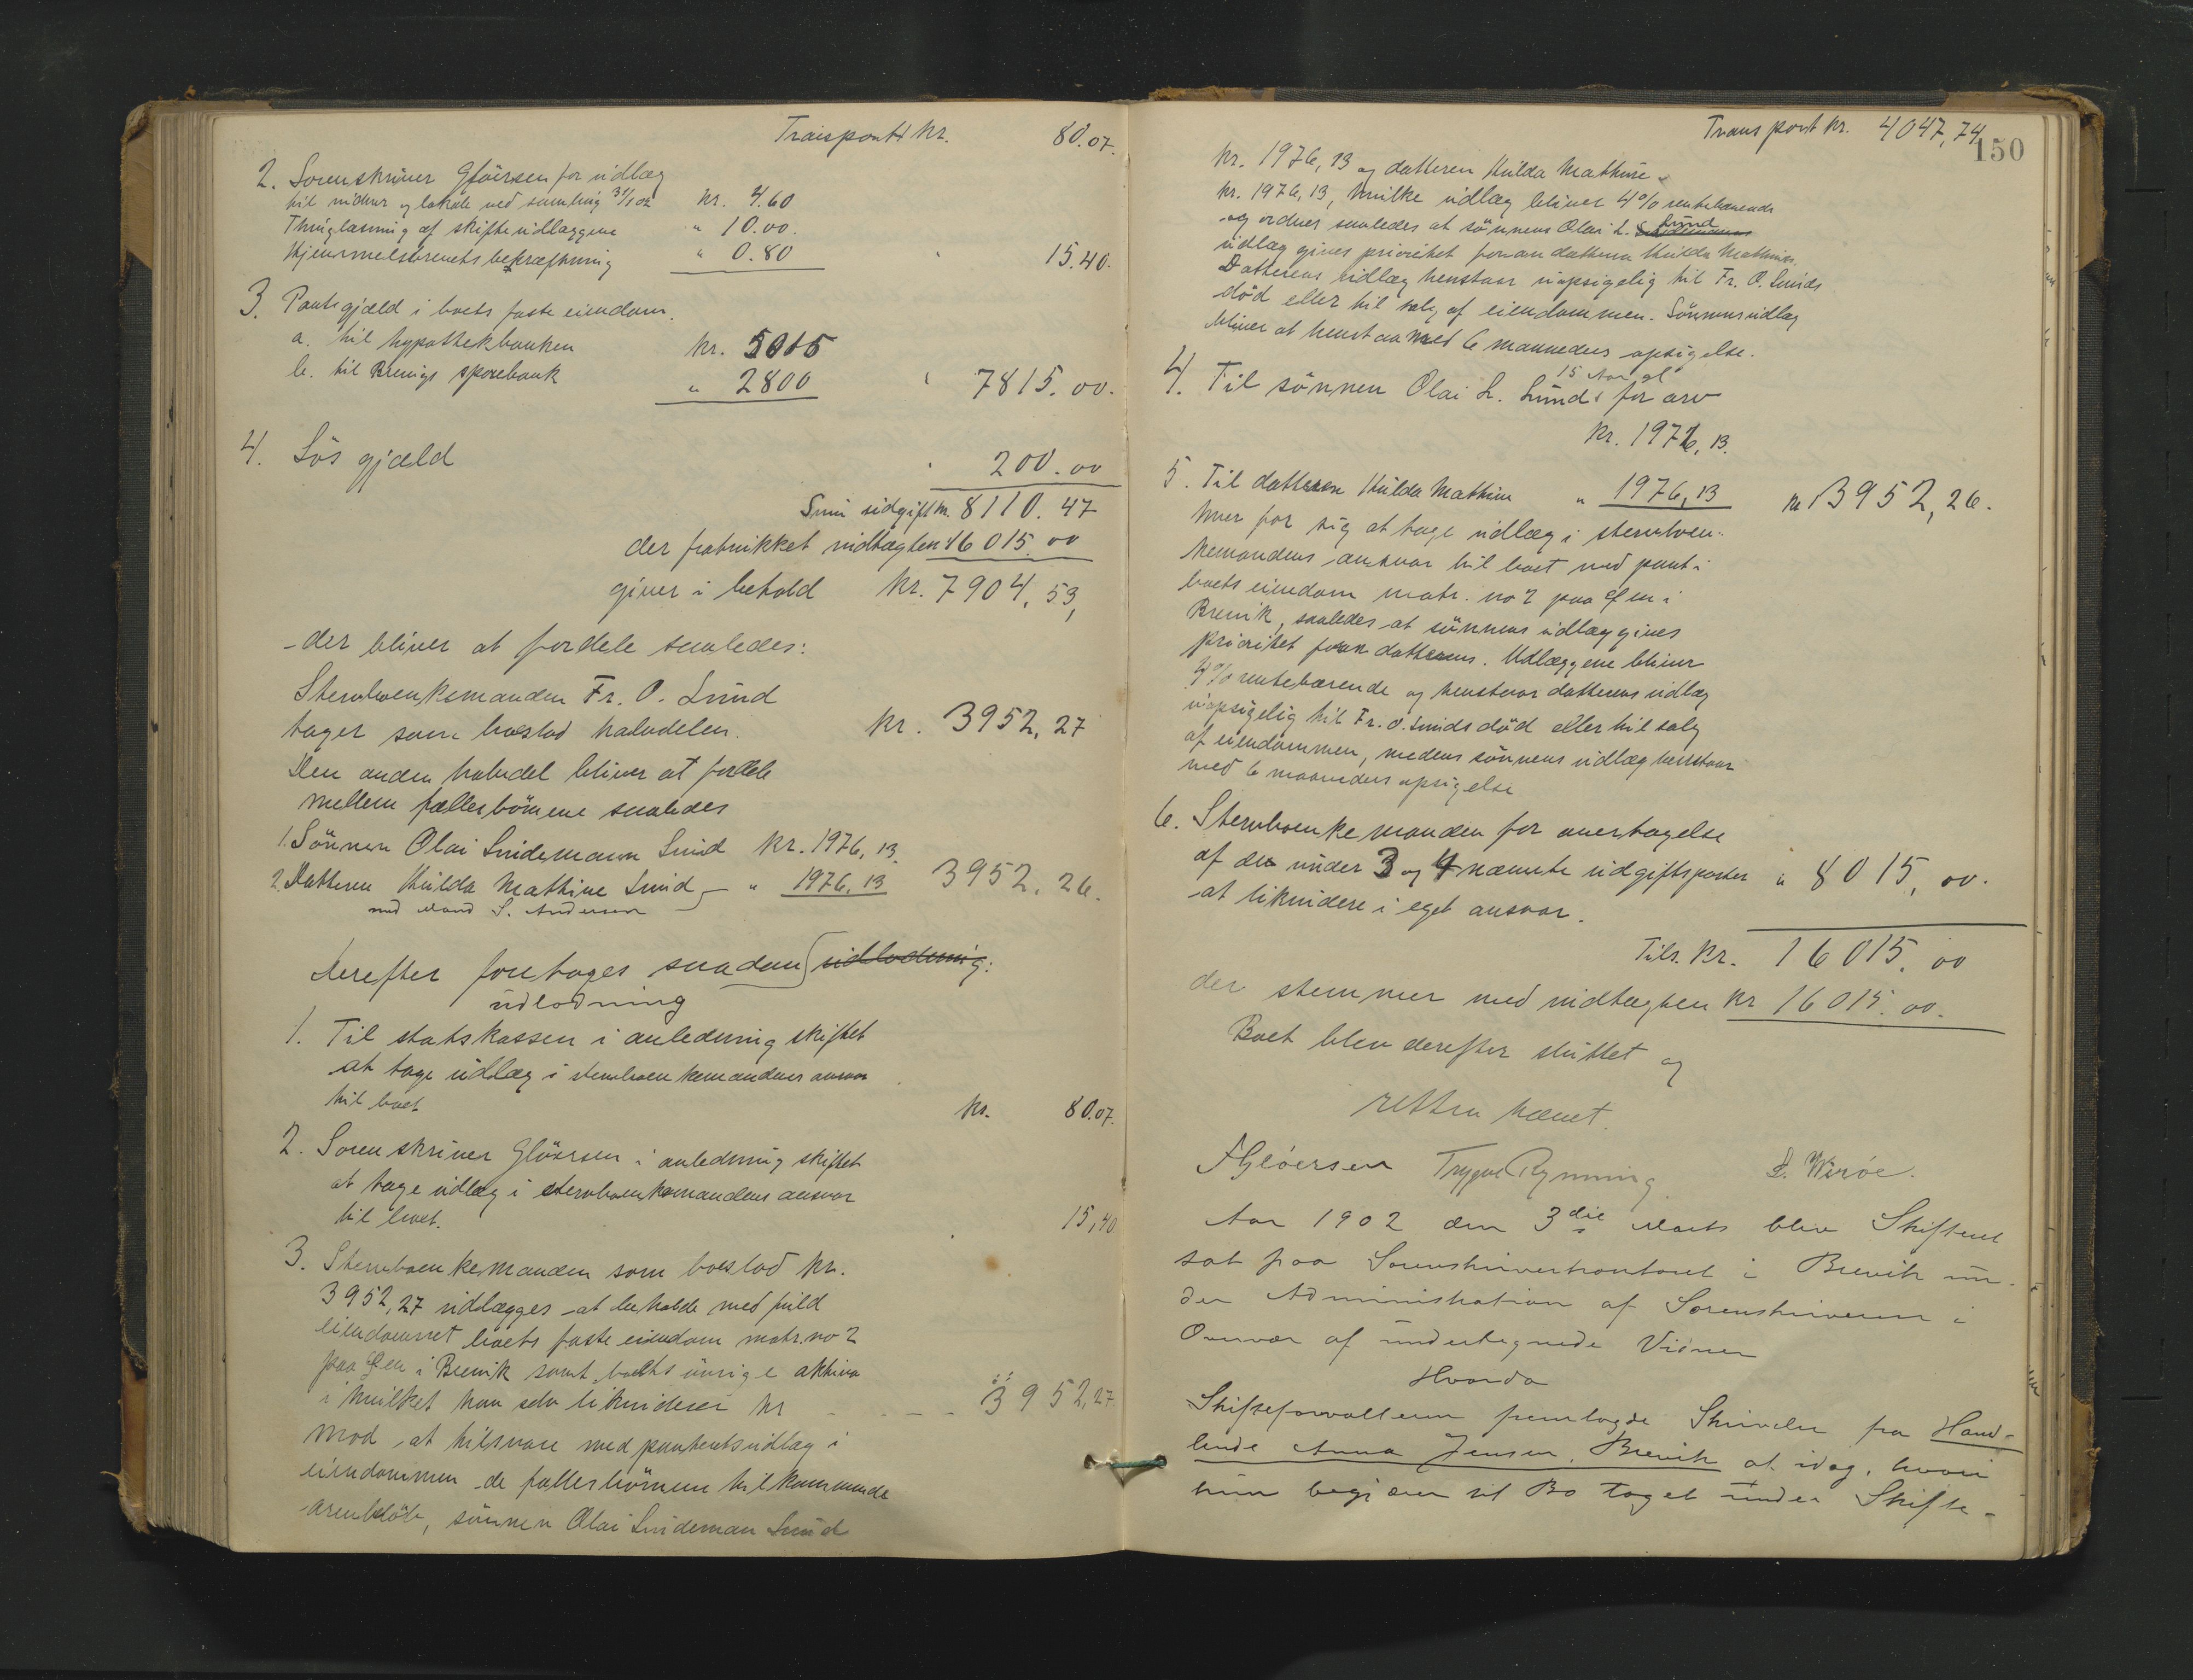 Transport kr. 80.07.
2. Sorenskriver Gløersen for udlæg
til vidner og lokale ved samling 31/1 02 kr. 4.60
Thinglæsning af skifteudlæggene " 10.00.
Hjemmelsbrevets bekræftning " 0.80 " 15.40.
3. Pantegjæld i boets faste eiendom.
a. til hypothekbanken kr. 5015
b. til Brevigs sparebank " 2800 " 7815.00.
4. Løs gjæld " 200.00
Sum udgift kr. 8110.47
der fratrukket indtægten 16015.00
giver i behold kr. 7904,53,
der bliver at fordele saaledes:
Stervboenkemanden Fr. O. Lund
tager som boeslod halvdelen. kr. 3952,27
Den anden halvdel bliver at fordele
mellem fællesbørnene saaledes
1. Sønnen Olai Lindemann Lund kr. 1976,13.
2. Datteren Hulda Mathine Lund " 1976,13 3952,26.
med Mand S. Andersen
Derefter foretages saadan udlodning:
udlodning
1. Til statskassen i anledning skiftet
at tage udlæg i stervboenkemandens ansvar
til boet kr. 80.07.
2. Sorenskriver Gløersen i anledning skiftet
at tage udlæg i stervboenkemandens ansvar
til boet. " 15,40
3. Stervboenkemanden som boeslod kr.
3952,27 udlægges at beholde med fuld
eiendomsret boets faste eiendom matr. no 2
paa Øen i Brevik samt boets øvrige aktiva
i hvilket han selv likviderer kr - - - 3952,27
mod at tilsvare med panteretsudlæg i
eiendommen de fællesbørnene tilkommende
arvebeløb, sønnen Olai Lindeman Lund
Transport kr. 4047,74
150
kr. 1976,13 og datteren Hulda Mathine
kr. 1976,13, hvilke udlæg bliver 4% rentebærende
og ordnes saaledes at sønnens Olai L. Lund
udlæg gives prioritet foran datteren Hulda Mathines.
Datterens udlæg henstaar uopsigelig til Fr. O. Lunds
død eller til salg af eiendommen. Sønnens udlæg
bliver at henstaa med 6 maaneders opsigelse.
15 Aar gl
4. Til sønnen Olai L. Lund for arv
kr. 1976,13.
5. Til datteren Hulda Mathine " 1976,13 kr 3952,26.
hver for sig at tage udlæg i stervboen-
kemandens ansvar til boet med pant i
boets eiendom matr. no 2 paa Øen i
Brevik, saaledes at sønnens udlæg gives
prioritet foran datterens. Udlæggene bliver
4% rentebærende og henstaar datterens udlæg
uopsigelig til Fr. O. Lunds død eller til salg
af eiendommen, medens sønnens udlæg henstaar
med 6 maaneders opsigelse
6. Stervboenkemanden for overtagelse
af de under 3 og 4 nævnte udgiftsposter " 8015,00.
at likvidere i eget ansvar.
Tils. kr. 16015.00
der stemmer med indtægten kr 16015.00.
Boet blev derefter sluttet og
retten hævet.
FGløersen Trygve Rynning L. Wirøe.
Aar 1902 den 3die Marts blev Skifteret
sat paa Sorenskriverkontoret i Brevik un-
der Administration af Sorenskriveren i
Overvær af undertegnede Vidner
Hvorda
Skifteforvalteren fremlagde Skrivelse fra Hand-
lende Anna Jensen, Brevik af idag, hvori
hun begjærer sit Bo taget under Skifte-